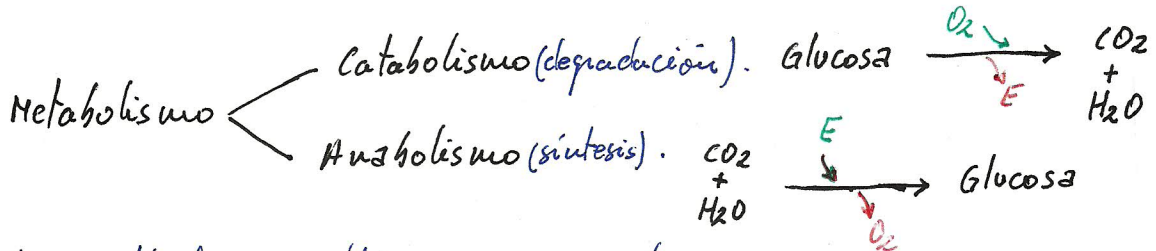 Metabolismo
Catabolismo (degradación). Glucosa
O2
E
CO2
+
H2O
Anabolismo (síntesis).
CO2
+
H2O
E
O2
Glucosa